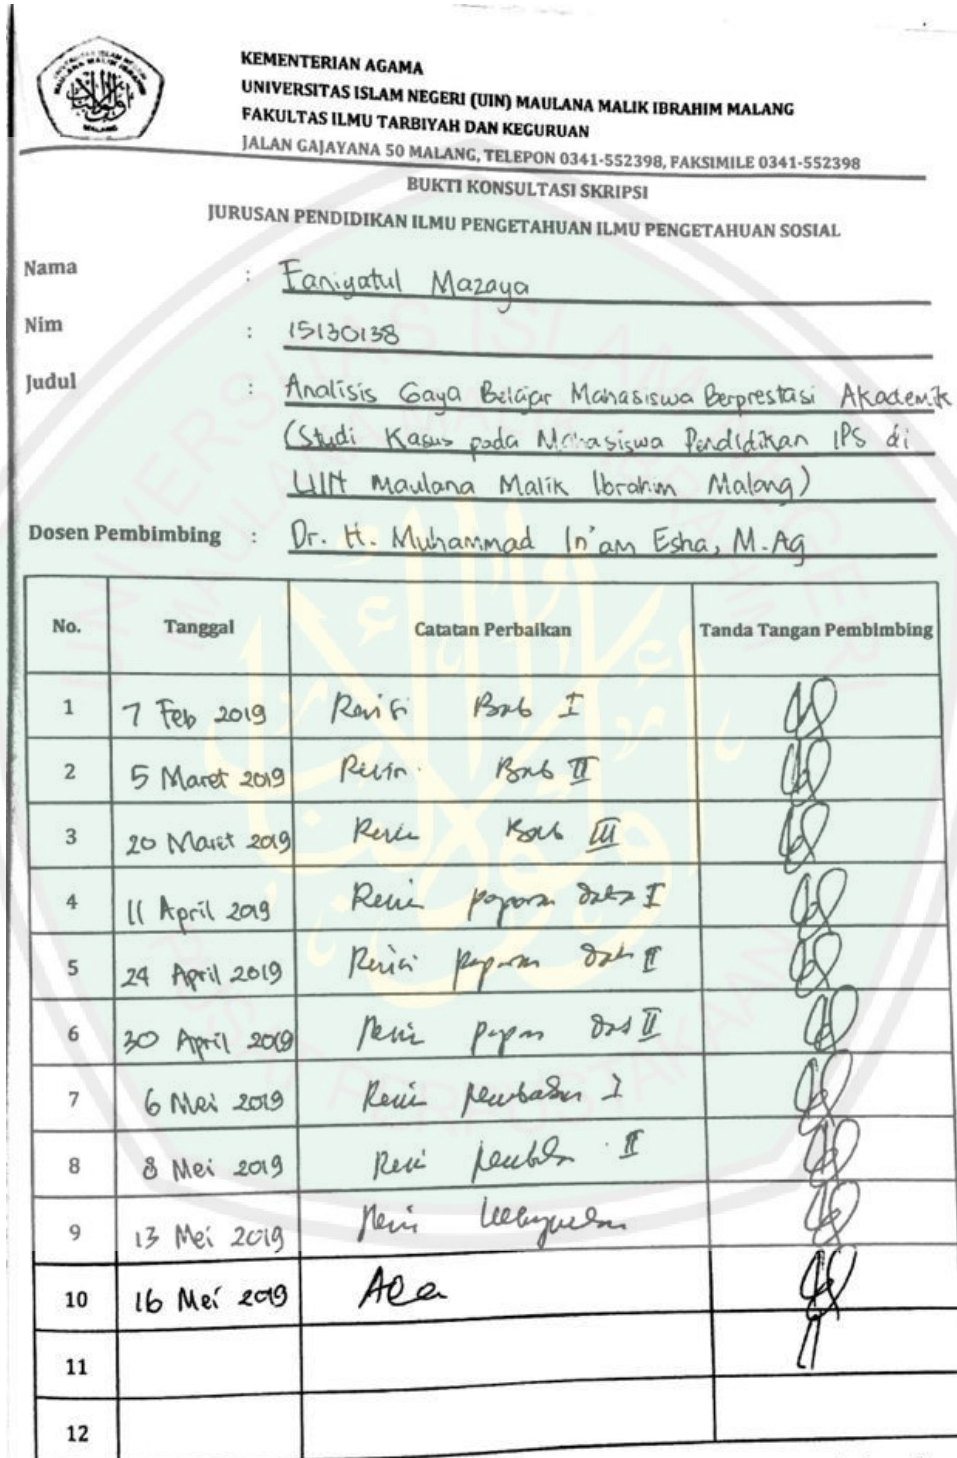 KEMENTERIAN AGAMA
UNIVERSITAS ISLAM NEGERI (UIN) MAULANA MALIK IBRAHIM MALANG
FAKULTAS ILMU TARBIYAH DAN KEGURUAN
JALAN GAJAYANA 50 MALANG, TELEPON 0341-552398, FAKSIMILE 0341-552398
BUKTI KONSULTASI SKRIPSI
JURUSAN PENDIDIKAN ILMU PENGETAHUAN ILMU PENGETAHUAN SOSIAL
Nama : Faniyatul Mazaya
Nim : 15130138
Judul : Analisis Gaya Belajar Mahasiswa Berprestasi Akademik
(Studi Kasus pada Mahasiswa Pendidikan IPS di
UIN Maulana Malik Ibrahim Malang)
Dosen Pembimbing : Dr. H. Muhammad In'am Esha, M.Ag
No. Tanggal Catatan Perbaikan Tanda Tangan Pembimbing
1 7 Feb 2019 Revisi Bab I
2 5 Maret 2019 Revisi Bab II
3 20 Maret 2019 Revisi Bab III
4 11 April 2019 Revisi paparan data I
5 24 April 2019 Revisi paparan data II
6 30 April 2019 Revisi paparan data II
7 6 Mei 2019 Revisi I
8 8 Mei 2019 Revisi II
9 13 Mei 2019 Revisi
10 16 Mei 2019
11
12